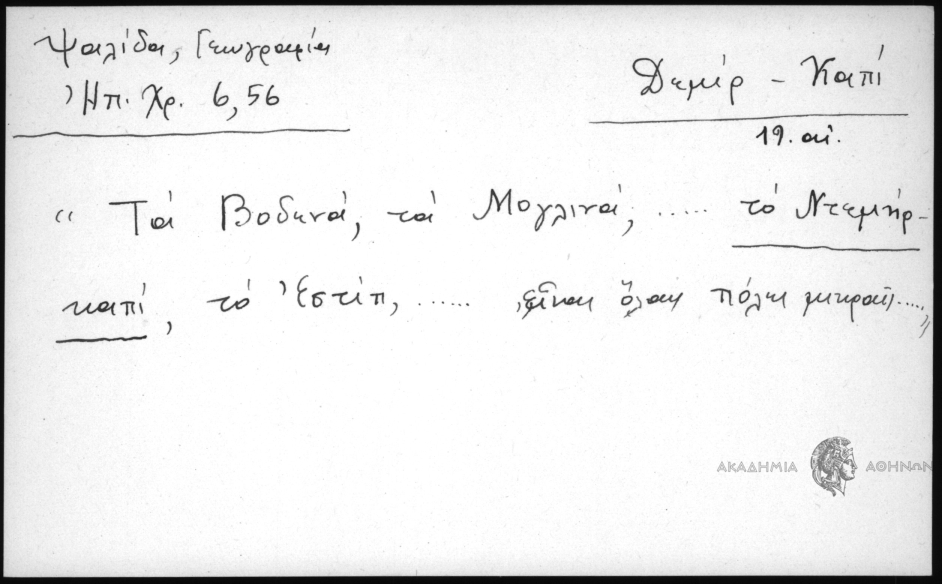 Ψαλίδα, Γεωγραφία
Ἠπ. Χρ. 6,56
Δεμίρ - Καπί
19. αἰ.
“ Τά Βοδενά, τά Μογλινά, ..... τό Ντεμήρ-
καπί, τό Ἐστίπ, ...... εἶναι ὅλαι πόλεις μικραί ....."
ΑΚΑΔΗΜΙΑ ΑΘΗΝΩΝ